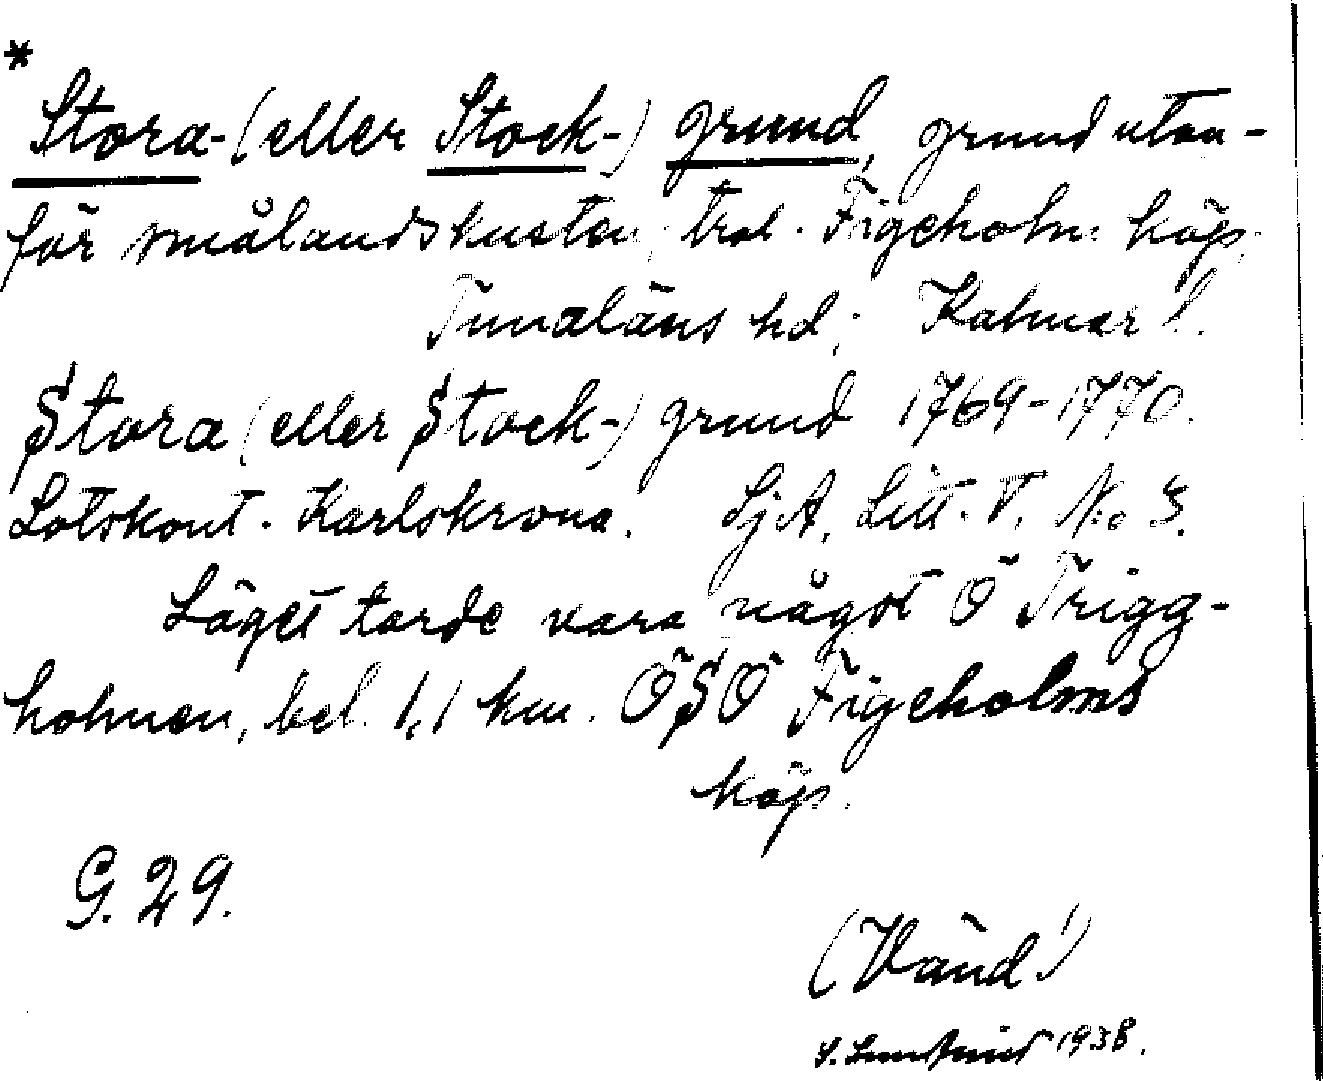 *
Stora- (eller Stock-) grund, grund utan-
för smålandskusten, trol. Figeholms köp,
Tunaläns hd; Kalmar l.
Stora (eller Stock-) grund 1769-1770.
Lotskont. Karlskrona. SjA, Litt. V. No 3.
Läget torde vara något Ö Trigg-
holmen, bel. 1,1 km. ÖSÖ Figeholms
köp.
G. 29.
(Vänd!)
1938.